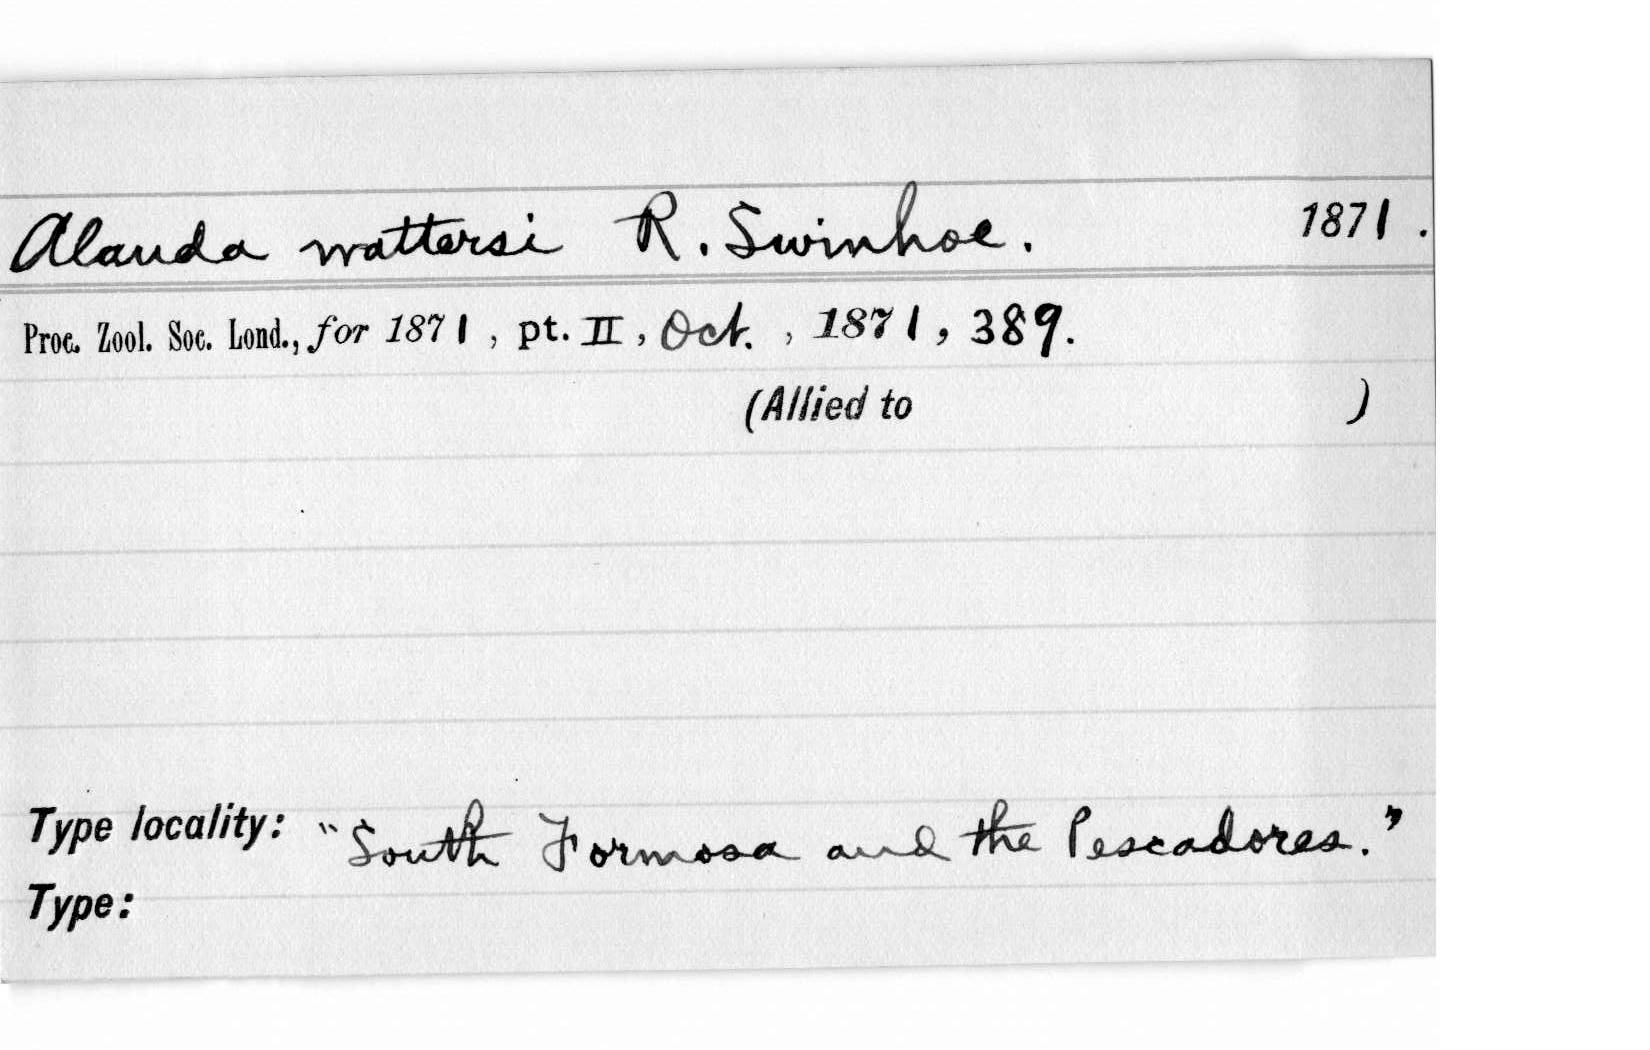 Alauda wattersi R. Swinhoe. 1871.
Proc. Zool. Soc. Lond., for 1871, pt. II, Oct., 1871, 389.
(Allied to )
Type locality: "South Formosa and the Pescadores."
Type: